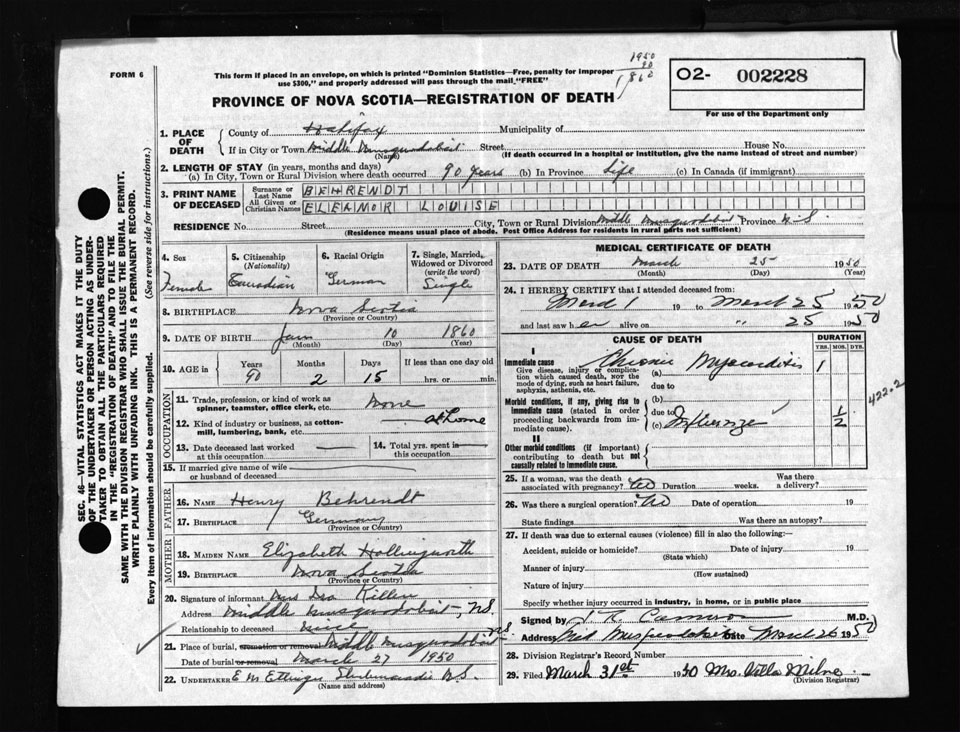 FORM 6
This form if placed in an envelope, on which is printed "Dominion Statistics—Free, penalty for improper
use $300," and properly addressed will pass through the mail "FREE"
1950
90
1860
O2- 002228
For use of the Department only
PROVINCE OF NOVA SCOTIA—REGISTRATION OF DEATH
1. PLACE OF DEATH
County of Halifax Municipality of
If in City or Town Middle Musquodoboit Street House No.
(Name) (If death occurred in a hospital or institution, give the name instead of street and number)
2. LENGTH OF STAY (in years, months and days)
(a) In City, Town or Rural Division where death occurred 90 years (b) In Province Life (c) In Canada (if immigrant)
3. PRINT NAME OF DECEASED
Surname or Last Name BEHRENDT
All Given or Christian Names ELEAMOR LOUISE
RESIDENCE No. Street City, Town or Rural Division Middle Musquodoboit Province N.S.
(Residence means usual place of abode. Post Office Address for residents in rural parts not sufficient)
4. Sex
Female
5. Citizenship
(Nationality)
Canadian
6. Racial Origin
German
7. Single, Married, Widowed or Divorced
(write the word)
Single
8. BIRTHPLACE Nova Scotia
(Province or Country)
9. DATE OF BIRTH Jan 10 1860
(Month) (Day) (Year)
10. AGE in Years Months Days If less than one day old
90 2 15 hrs. or min.
OCCUPATION
11. Trade, profession, or kind of work as
spinner, teamster, office clerk, etc. None
12. Kind of industry or business, as cotton-
mill, lumbering, bank, etc. at Home
13. Date deceased last worked
at this occupation
14. Total yrs. spent in
this occupation
15. If married give name of wife
or husband of deceased
FATHER
16. NAME Henry Behrendt
17. BIRTHPLACE Germany
(Province or Country)
MOTHER
18. MAIDEN NAME Elizabeth Hollingworth
19. BIRTHPLACE Nova Scotia
(Province or Country)
20. Signature of informant Mrs Killen
Address Middle Musquodoboit, N.S.
Relationship to deceased niece
21. Place of burial, cremation or removal Middle Musquodoboit N.S.
Date of burial or removal March 27 1950
22. UNDERTAKER E M Ettinger Shubenacadie N.S.
(Name and address)
MEDICAL CERTIFICATE OF DEATH
23. DATE OF DEATH March 25 1950
(Month) (Day) (Year)
24. I HEREBY CERTIFY that I attended deceased from:
March 1 19 to March 25 1950
and last saw her alive on " 25 1950
CAUSE OF DEATH
DURATION
YRS. MOS. DYS.
I
Immediate cause
Give disease, injury or complica-
tion which caused death, NOT the
mode of dying, such as heart failure,
asphyxia, asthenia, etc.
(a) Chronic Myocarditis 1
due to
Morbid conditions, if any, giving rise to
immediate cause (stated in order
proceeding backwards from im-
mediate cause).
(b)
due to
(c) Influenza 1/2
422.2
II
Other morbid conditions (if important)
contributing to death but not
causally related to immediate cause.
25. If a woman, was the death
associated with pregnancy? No Duration weeks. Was there
a delivery?
26. Was there a surgical operation? No Date of operation 19
State findings Was there an autopsy?
27. If death was due to external causes (violence) fill in also the following:—
Accident, suicide or homicide? Date of injury 19
(State which)
Manner of injury
(How sustained)
Nature of injury
Specify whether injury occurred in industry, in home, or in public place
Signed by M.D.
Address Mid Musquodoboit Date March 26 1950
28. Division Registrar's Record Number
29. Filed March 31st 1950 Mrs. Villa Milne
(Division Registrar)
SEC. 46—VITAL STATISTICS ACT MAKES IT THE DUTY
OF THE UNDERTAKER OR PERSON ACTING AS UNDER-
TAKER TO OBTAIN ALL THE PARTICULARS REQUIRED
IN THE "REGISTRATION OF DEATH" AND TO FILE THE
SAME WITH THE DIVISION REGISTRAR WHO SHALL ISSUE THE BURIAL PERMIT.
WRITE PLAINLY WITH UNFADING INK. THIS IS A PERMANENT RECORD.
Every item of information should be carefully supplied. (See reverse side for instructions.)